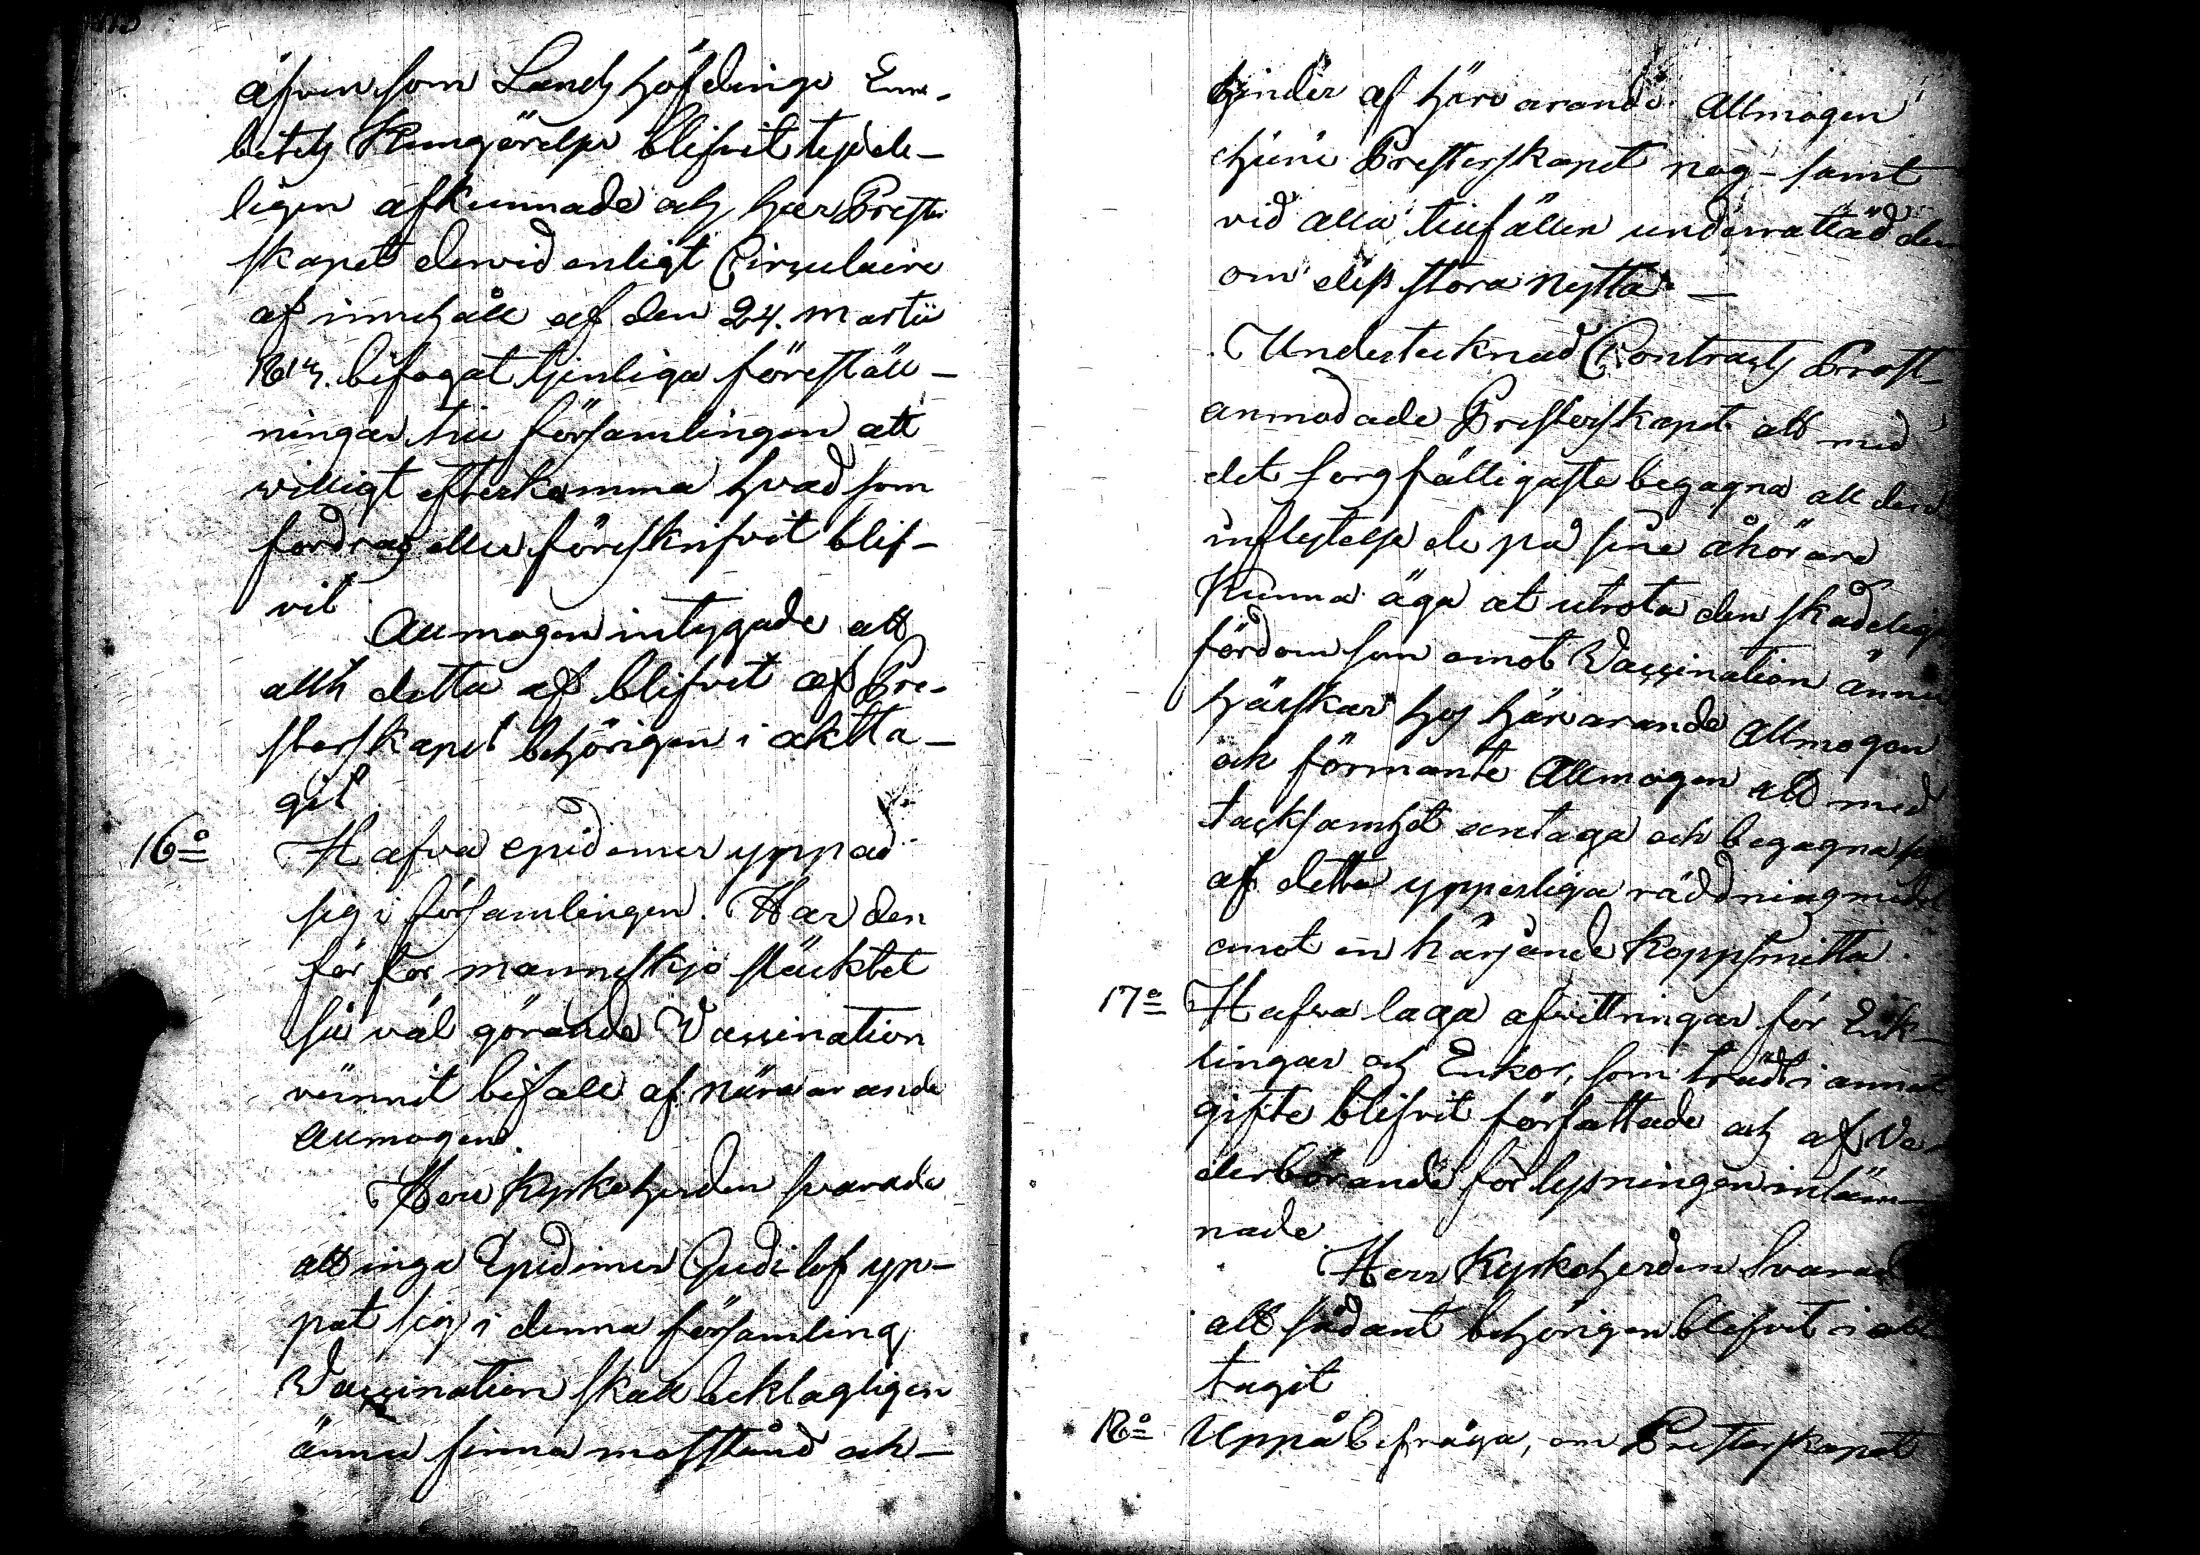 äfven som Landshöfdinge Em-
betets Kungörelse blifvit tyde-
ligen afkunnade och har Preste
skapet dervid enligt Circulaire
af innehåll af den 24. Martii
bifogat tjenliga föreställ-
ningar till församlingen att
willigt efterkomma hvad som
fordras eller föreskrifvit blif-
vit
Allmogen intygade att
allt detta af blifvit af Pre-
sterskapet behörigen i aktta-
git
16º Hafva epidemier yppad
sig i församlingen. Har den
för menniskjo släcktet
så väl görande Vaccination
vunnit bifall af närvarande
Allmogen.
Herr Kyrkoherden svarade
att inga Epidimier Gudi lof yp-
pat sig i denna församling
Vaccination skall beklagligen
ännu finna motstånd och
hinder af härvarande Allmogen
Presterskapet nog-samt
vid alla tillfällen underrättad dem
om dess stora nytta —
Undertecknad Contracts Prost
anmodade Presterskapet att med
det sorgfälligaste begagna all den
inflytelse de på sine åhörare
Kunna äga at utrota den skadeliga
fördom som emot Vaccination ännu
härskar hos härvarande Allmogen
och förmante Allmogen att med
tacksamhet antaga och begagna sig
af detta ypperliga räddningmedel
emot en härjande Koppsmitta.
17º Hafva laga afvittringar för Enk-
lingar och Enkor, som trädt i annat
gifte blifvit författade och af Ve-
derbörande för lysningen inläm-
nade.
Herr Kyrkoherden Svarade
att sådant behörigen blifvit i akt
tagit
18º Uppå befråga, om Presterskapet